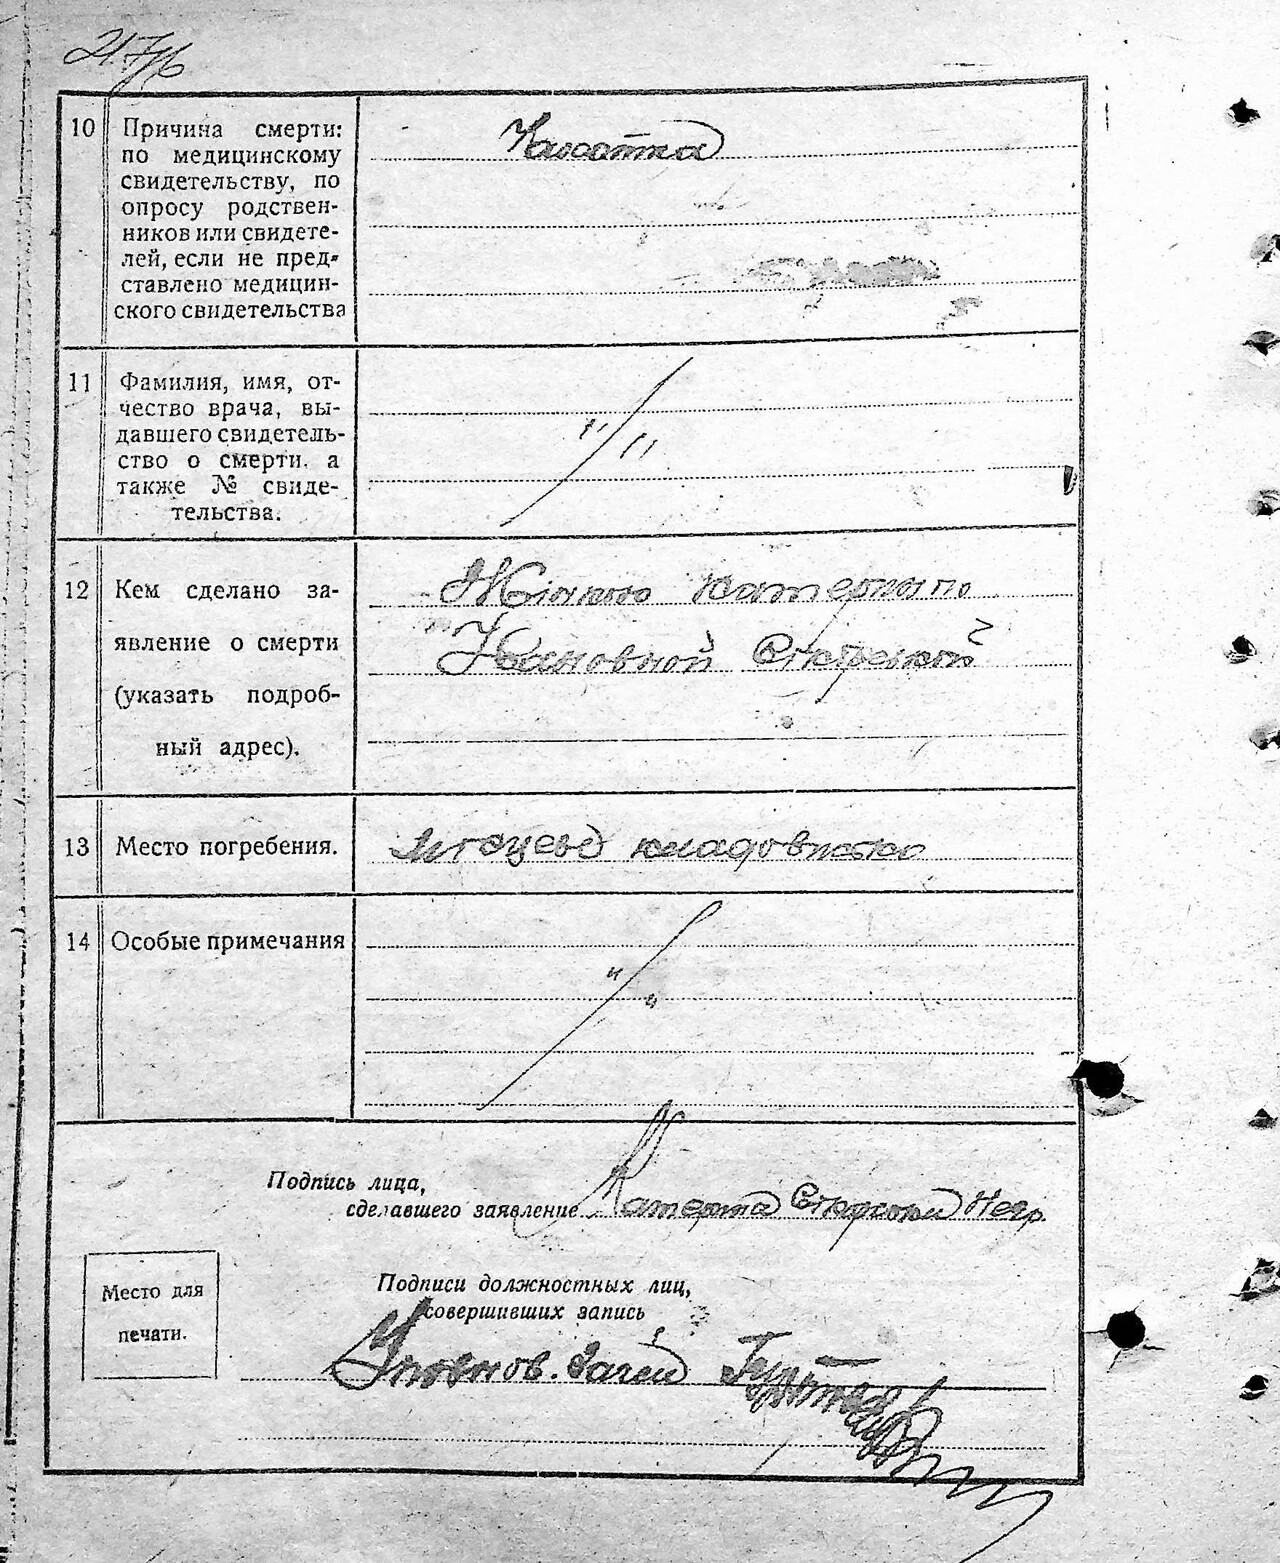 10 Причина смерти:
по медицинскому
свидетельству, по
опросу родствен-
ников или свидете-
лей, если не пред-
ставлено медицин-
ского свидетельства
11 Фамилия, имя, от-
чество врача, вы-
давшего свидетель-
ство о смерти, а
также № свиде-
тельства.
" "
12 Кем сделано за-
явление о смерти
(указать подроб-
ный адрес).
Жінкою Катериною
Івановной
13 Место погребения.
кладовиско
14 Особые примечания
" "
Подпись лица,
сделавшего заявление Катерина
Место для
печати.
Подписи должностных лиц,
совершивших запись